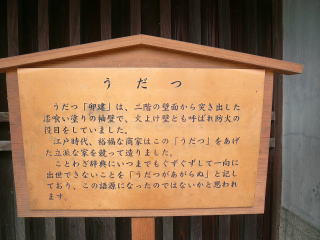 うだつ
うだつ「卯建」は、二階の壁面から突き出した
漆喰い塗りの袖壁で、火よけ壁とも呼ばれ防火の
役目をしていました。
江戸時代、裕福な商家はこの「うだつ」をあげ
た立派な家を競って造りました。
ことわざ辞典にいつまでもぐずぐずして一向に
出世できないことを「うだつがあがらぬ」と記し
ており、この語源になったのではないかと思われ
ます。